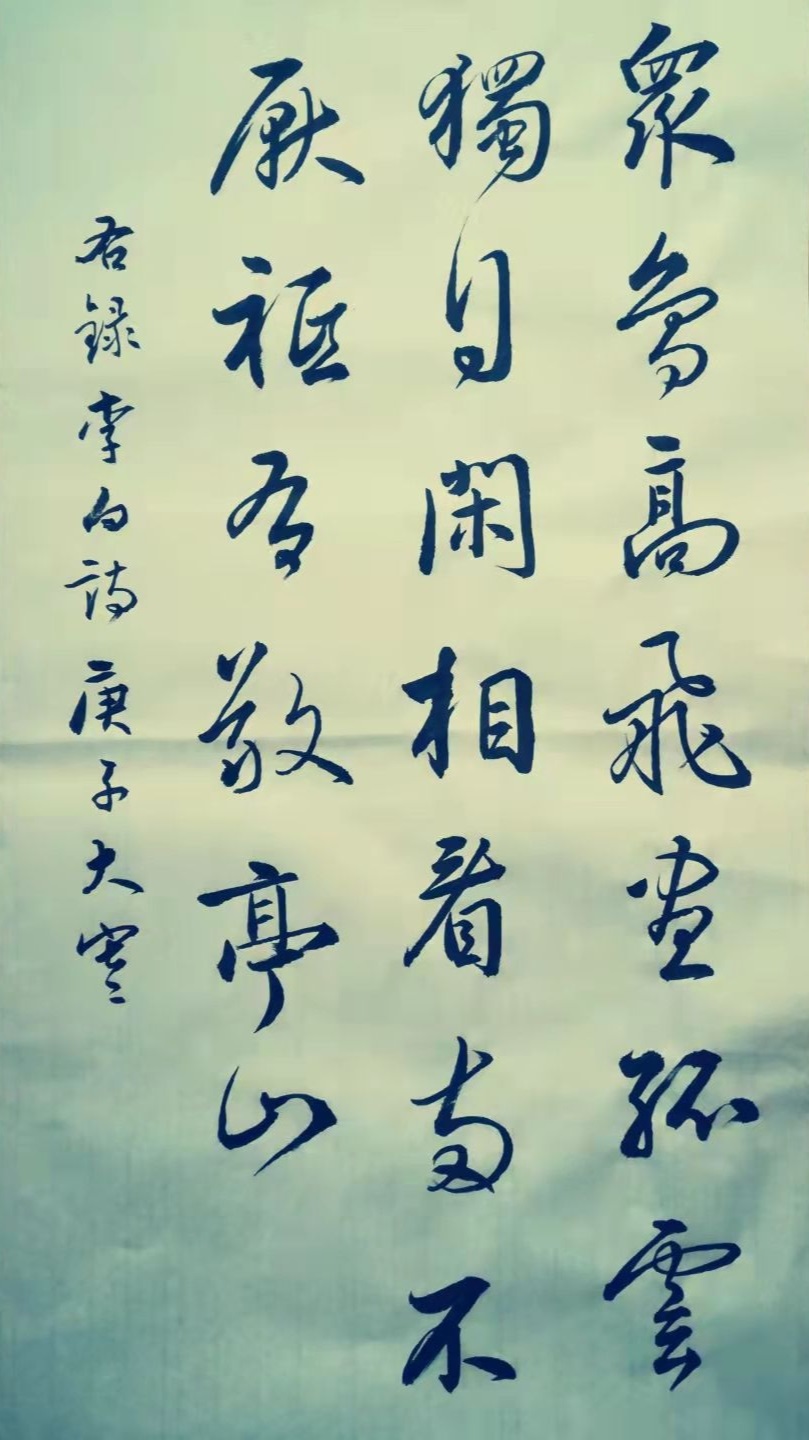 眾鳥高飛盡孤雲
獨自閑相看兩不
厭祗有敬亭山
右録李白詩庚子大寒